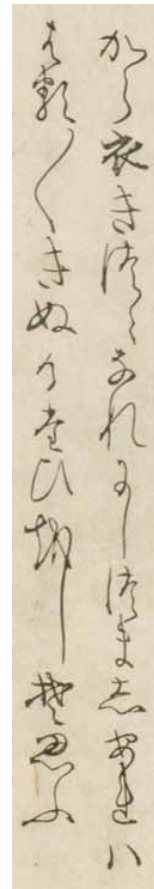 から衣きつゝなれにしつましあれハ
はる〳〵きぬるたひをしそ思ふ